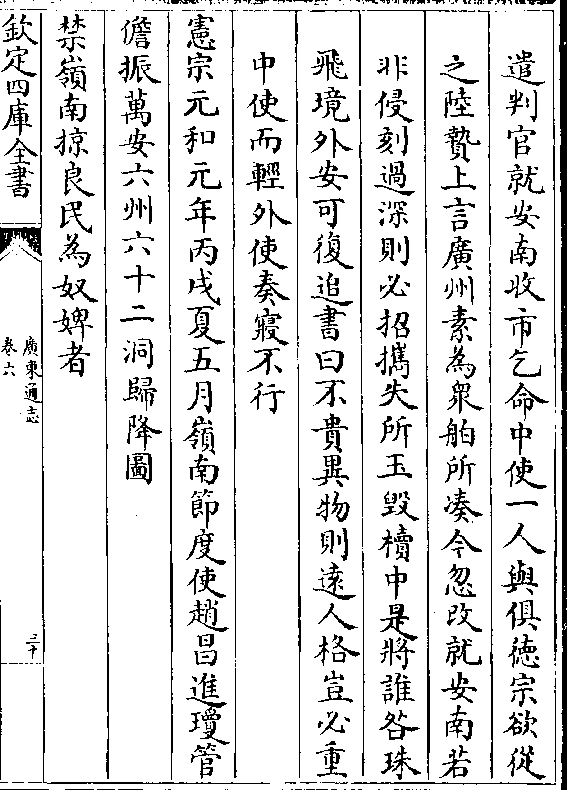 遣判官就安南收市乞命中使一人與俱徳宗欲從
之陸贄上言廣州素為衆舶所凑今忽改就安南若
非侵刻過深則必招攜失所玉毀櫝中是將誰咎珠
飛境外安可復追書曰不貴異物則逺人格豈必重
中使而輕外使奏寢不行
憲宗元和元年丙戌夏五月嶺南節度使趙昌進瓊管
儋振萬安六州六十二洞歸降圖
禁嶺南掠良民為奴婢者
欽定四庫全書
廣東通志
卷六
三十